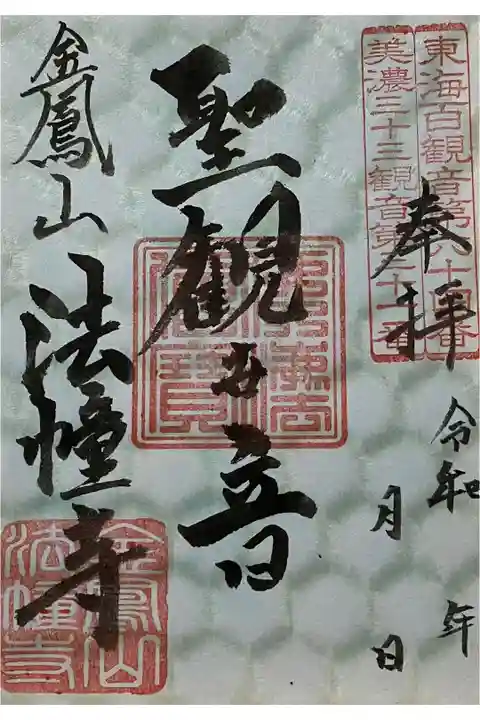 東海百観音第六十四番
美濃三十三観音第三十一番
奉拝
令和 年
月 日
聖観世音
佛法僧寶
金鳳山
法幢寺
金鳳山
法幢寺